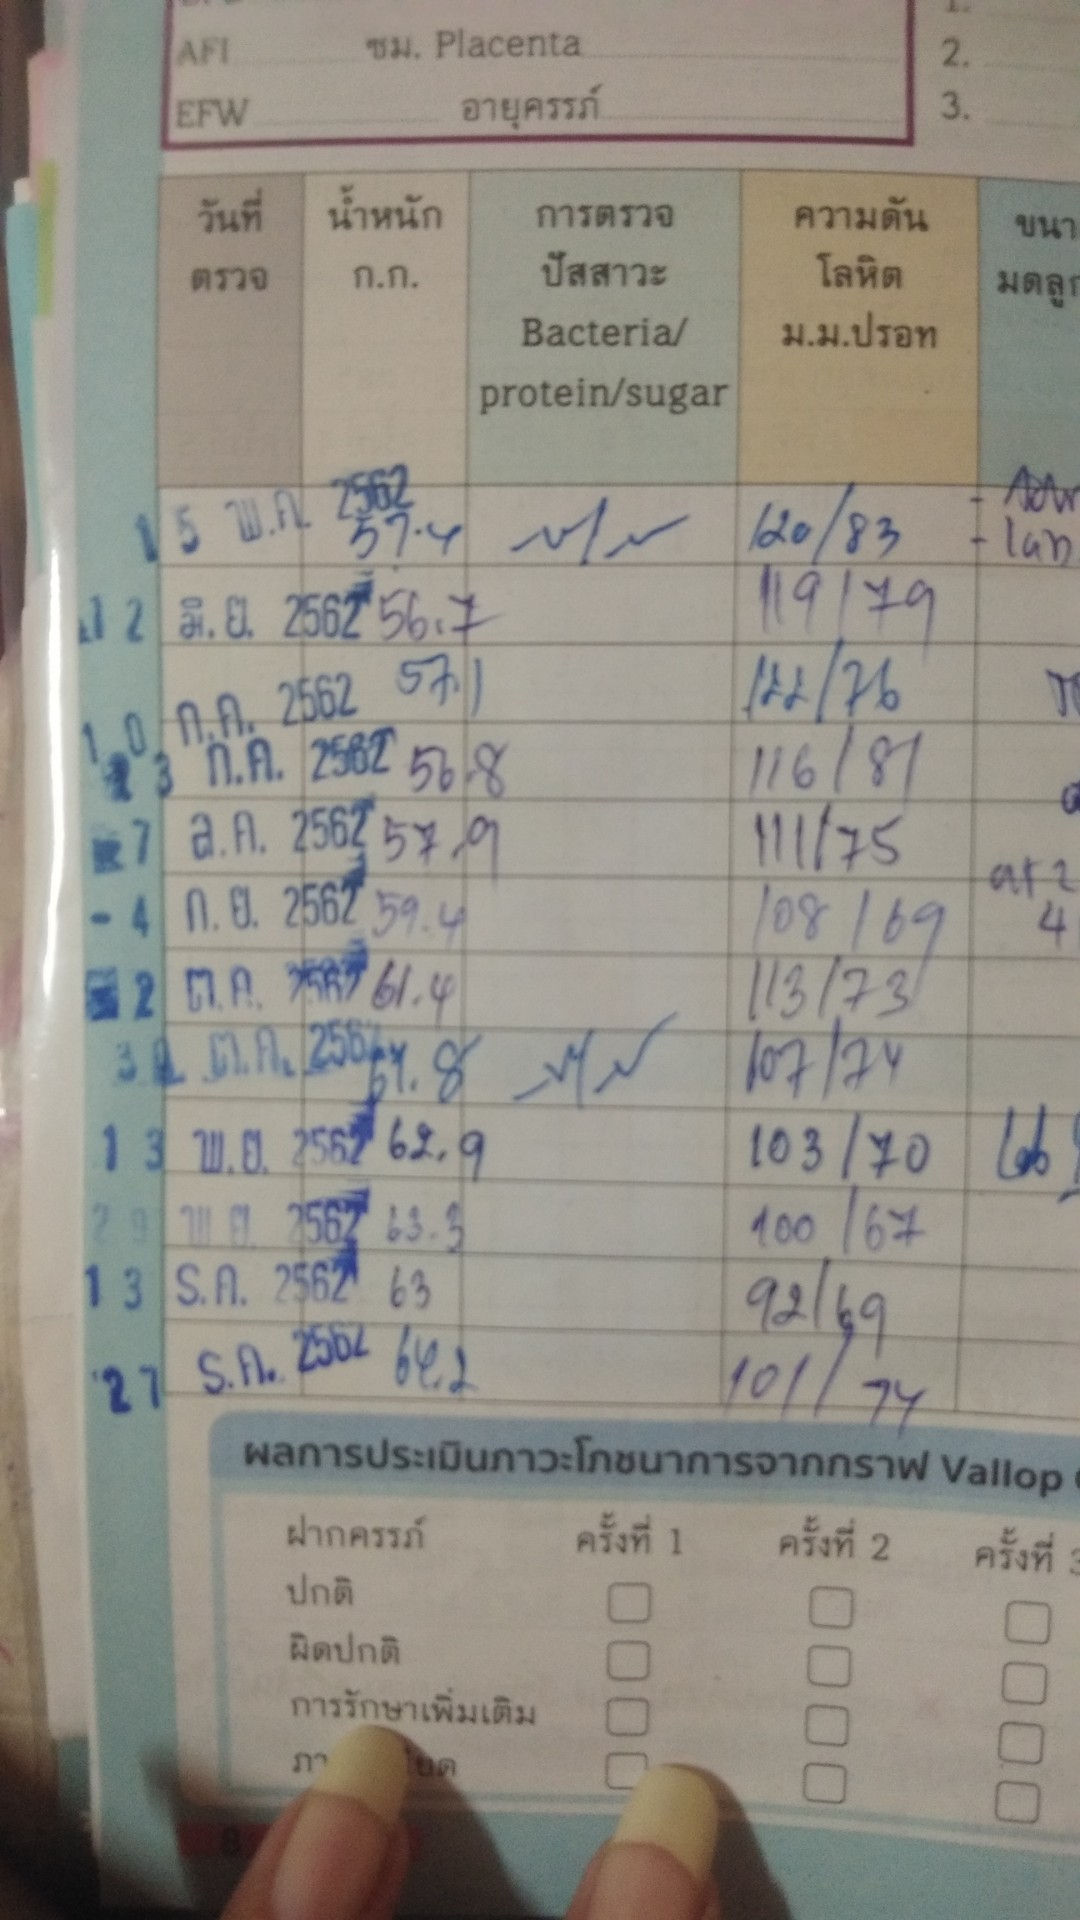 AFI ซม. Placenta 2.
EFW อายุครรภ์ 3.
วันที่ตรวจ น้ำหนัก ก.ก. การตรวจปัสสาวะ Bacteria/protein/sugar ความดันโลหิต ม.ม.ปรอท
15 พ.ค. 2562 57.4 120/83
12 มิ.ย. 2562 56.7 119/79
10 ก.ค. 2562 57.1 122/76
23 ก.ค. 2562 56.8 116/81
7 ส.ค. 2562 57.9 111/75
-4 ก.ย. 2562 59.4 108/69
2 ต.ค. 2562 61.4 113/73
ต.ค. 107/74
13 พ.ย. 2562 62.9 103/70
29 พ.ย. 2562 63.3 100/67
13 ธ.ค. 2562 63 92/69
27 ธ.ค. 2562 64.2 101/74
ผลการประเมินภาวะโภชนาการจากกราฟ Vallop
ฝากครรภ์ ครั้งที่ 1 ครั้งที่ 2 ครั้งที่ 3
ปกติ
ผิดปกติ
การรักษาเพิ่มเติม
8